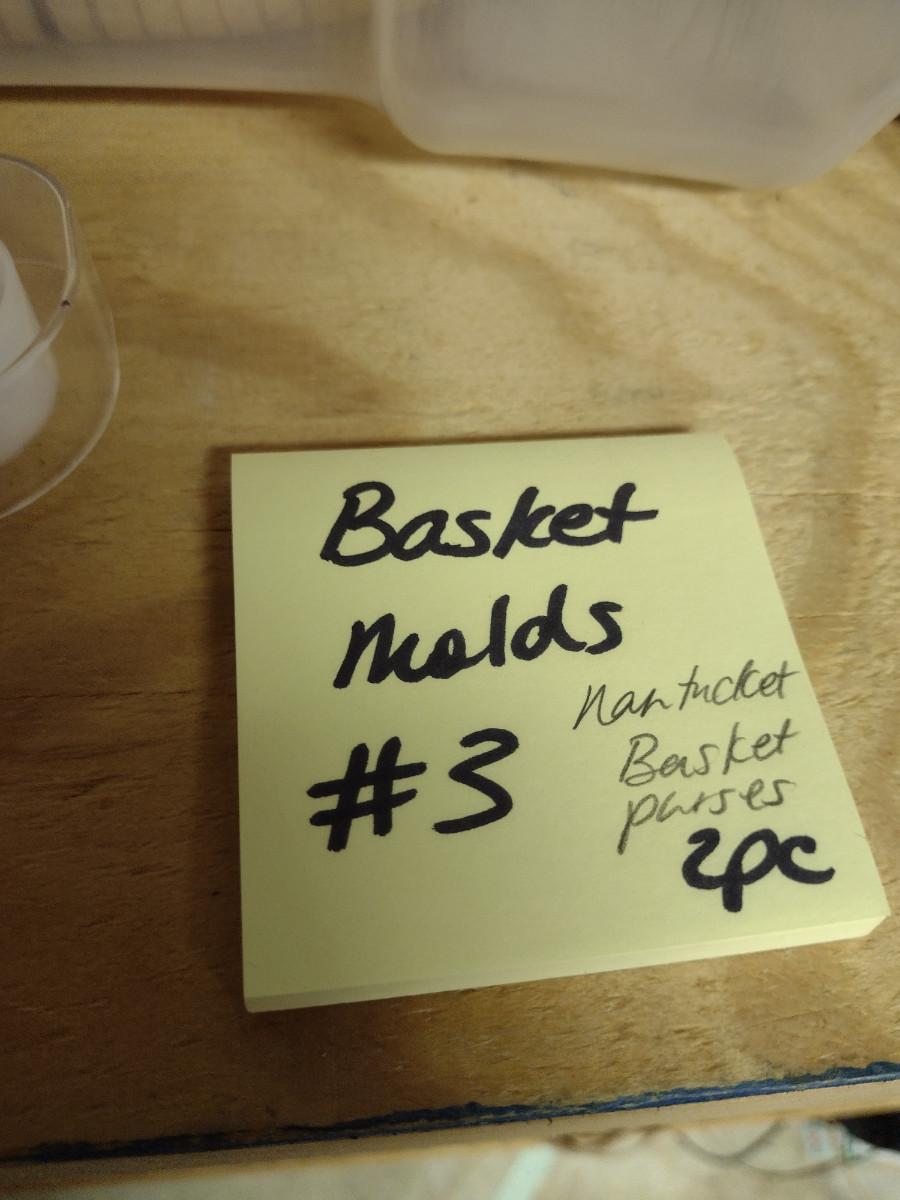 Basket
Molds
#3
Nantucket
Basket
purses
2pc